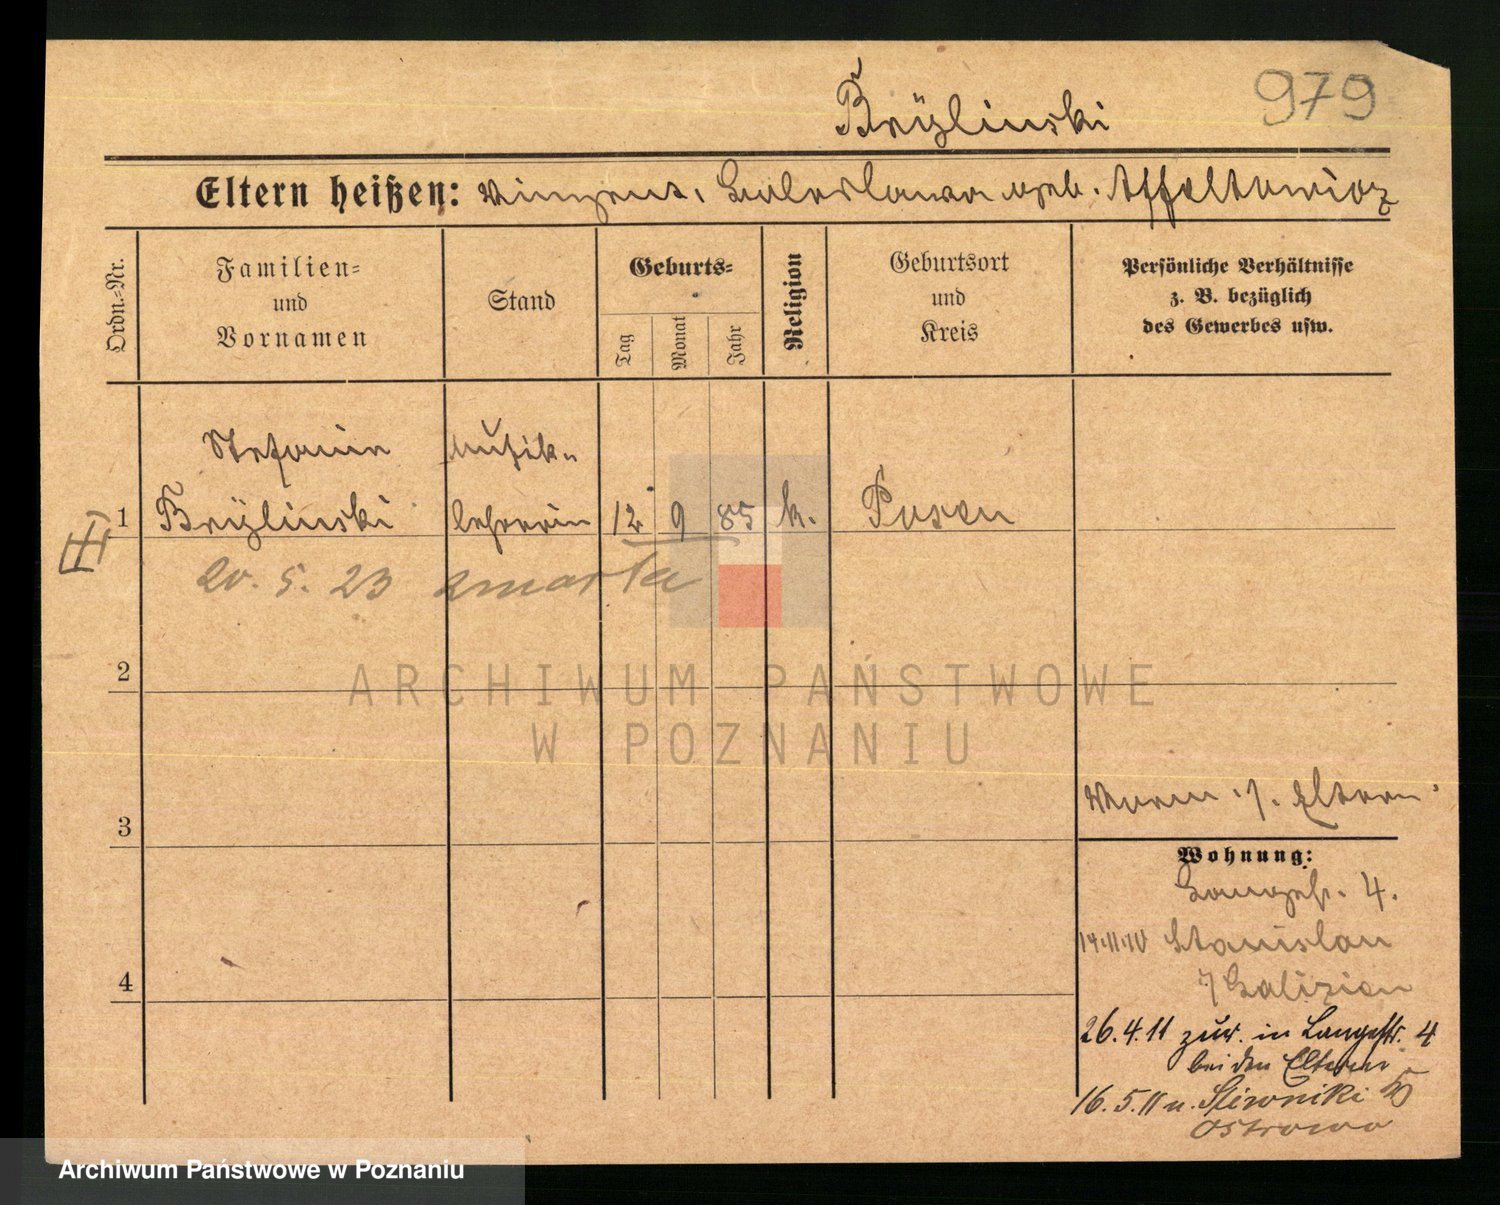 979
Bryzlinski
Eltern heißen: Vinzens, Boleslawa geb. Affeltowicz
Ordn.=Nr.
Familien=
und
Vornamen
Stand
Geburts=
Tag
Monat
Jahr
Religion
Geburtsort
und
Kreis
Persönliche Verhältnisse
z. B. bezüglich
des Gewerbes usw.
Stefanie Musik=
1 Bryzlinski lehrerin 12 9 85 k. Posen
20. 5. 23 zmarła
2
3
4
ARCHIWUM PAŃSTWOWE
W POZNANIU
Eltern
Wohnung:
Langestr. 4.
14.11.10 Stanislau
Galizien
26.4.11 zur. in Langestr. 4
bei den Eltern
16.5.11 n. Śliwniki
Ostrowo
Archiwum Państwowe w Poznaniu